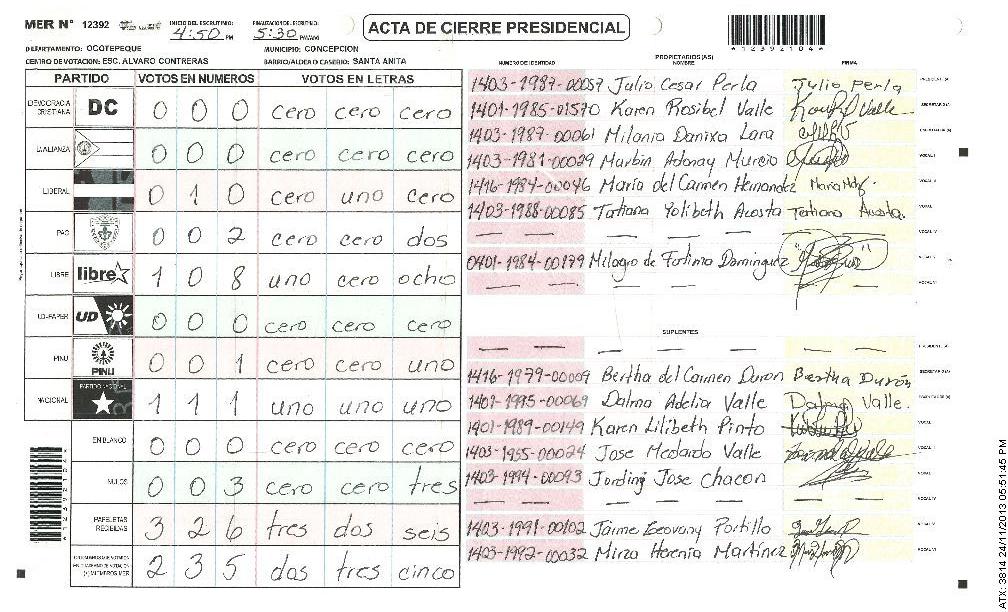 MER N° 12392 INICIO DEL ESCRUTINIO: 4:50 PM FINALIZACION DEL ESCRUTINIO: 5:30 PM/AM
ACTA DE CIERRE PRESIDENCIAL
*12392104*
DEPARTAMENTO: OCOTEPEQUE MUNICIPIO: CONCEPCION
CENTRO DE VOTACION: ESC. ALVARO CONTRERAS BARRIO/ALDEA O CASERIO: SANTA ANITA
PARTIDO VOTOS EN NUMEROS VOTOS EN LETRAS
DEMOCRACIA CRISTIANA DC 0 0 0 cero cero cero
LA ALIANZA 0 0 0 cero cero cero
LIBERAL 0 1 0 cero uno cero
PAC 0 0 2 cero cero dos
LIBRE libre 1 0 8 uno cero ocho
UD-FAPER UD 0 0 0 cero cero cero
PINU PINU 0 0 1 cero cero uno
NACIONAL PARTIDO NACIONAL 1 1 1 uno uno uno
EN BLANCO 0 0 0 cero cero cero
NULOS 0 0 3 cero cero tres
PAPELETAS RECIBIDAS 3 2 6 tres dos seis
(+) MIEMBROS MER 2 3 5 dos tres cinco
PROPIETARIOS (AS)
NUMERO DE IDENTIDAD NOMBRE FIRMA
1403-1987-00057 Julio Cesar Perla Julio Perla PRESIDENTE (A)
1401-1985-01570 Karen Rosibel Valle Valle SECRETARIO (A)
1403-1989-00061 Milania Danixa Lara ESCRUTADOR (A)
1403-1981-00029 Marbin Adonay Murcio VOCAL I
1416-1984-00046 Maria del Carmen Hernandez Maria Hdz. VOCAL II
1403-1988-00085 Tatiana Yolibeth Acosta Tatiana Acosta.
— — — — — — — VOCAL IV
0401-1984-00179 Milagro de Fatima Dominguez VOCAL V
— — — — — — — VOCAL VI
SUPLENTES
— — — — — — — PRESIDENTE (A)
1416-1979-00009 Bertha del Carmen Duron Bertha Durón SECRETARIO (A)
1401-1995-00069 Dalma Adelia Valle Dalma Valle. ESCRUTADOR (A)
1401-1989-00149 Karen Lilibeth Pinto VOCAL
1403-1955-00024 Jose Medardo Valle VOCAL
1403-1994-00093 Jording Jose Chacon VOCAL
— — — — — — — VOCAL IV
1403-1991-00102 Jaime Geovany Portillo VOCAL V
1403-1992-00032 Mirza Herenia Martinez VOCAL VI
ATX: 3814 24/11/2013 05:51:45 PM